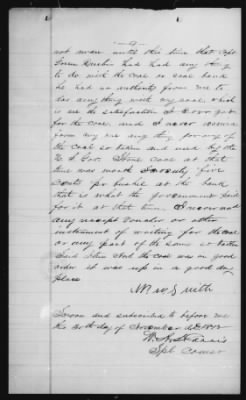 not aware until this time that Capt
had had any thing
to do with the coal or coal bank
he had no authority from me to
do any thing with my coal. which
is
for the coal. and I never
from any one any thing for any of
the coal so taken and used by the
U S Gov. Stone coal at that
time was worth Seventy five
cents per bushel at the bank
that is what the government paid
for it at that time, I
any receipt voucher or other
instrument of writing for the coal
or any part of the same so taken
Said Stone coal the coal was in good
order it was up in a good dry
place
Smith
Sworn and subscribed to before me
the 20th day of November AD 1872
Spl Comer